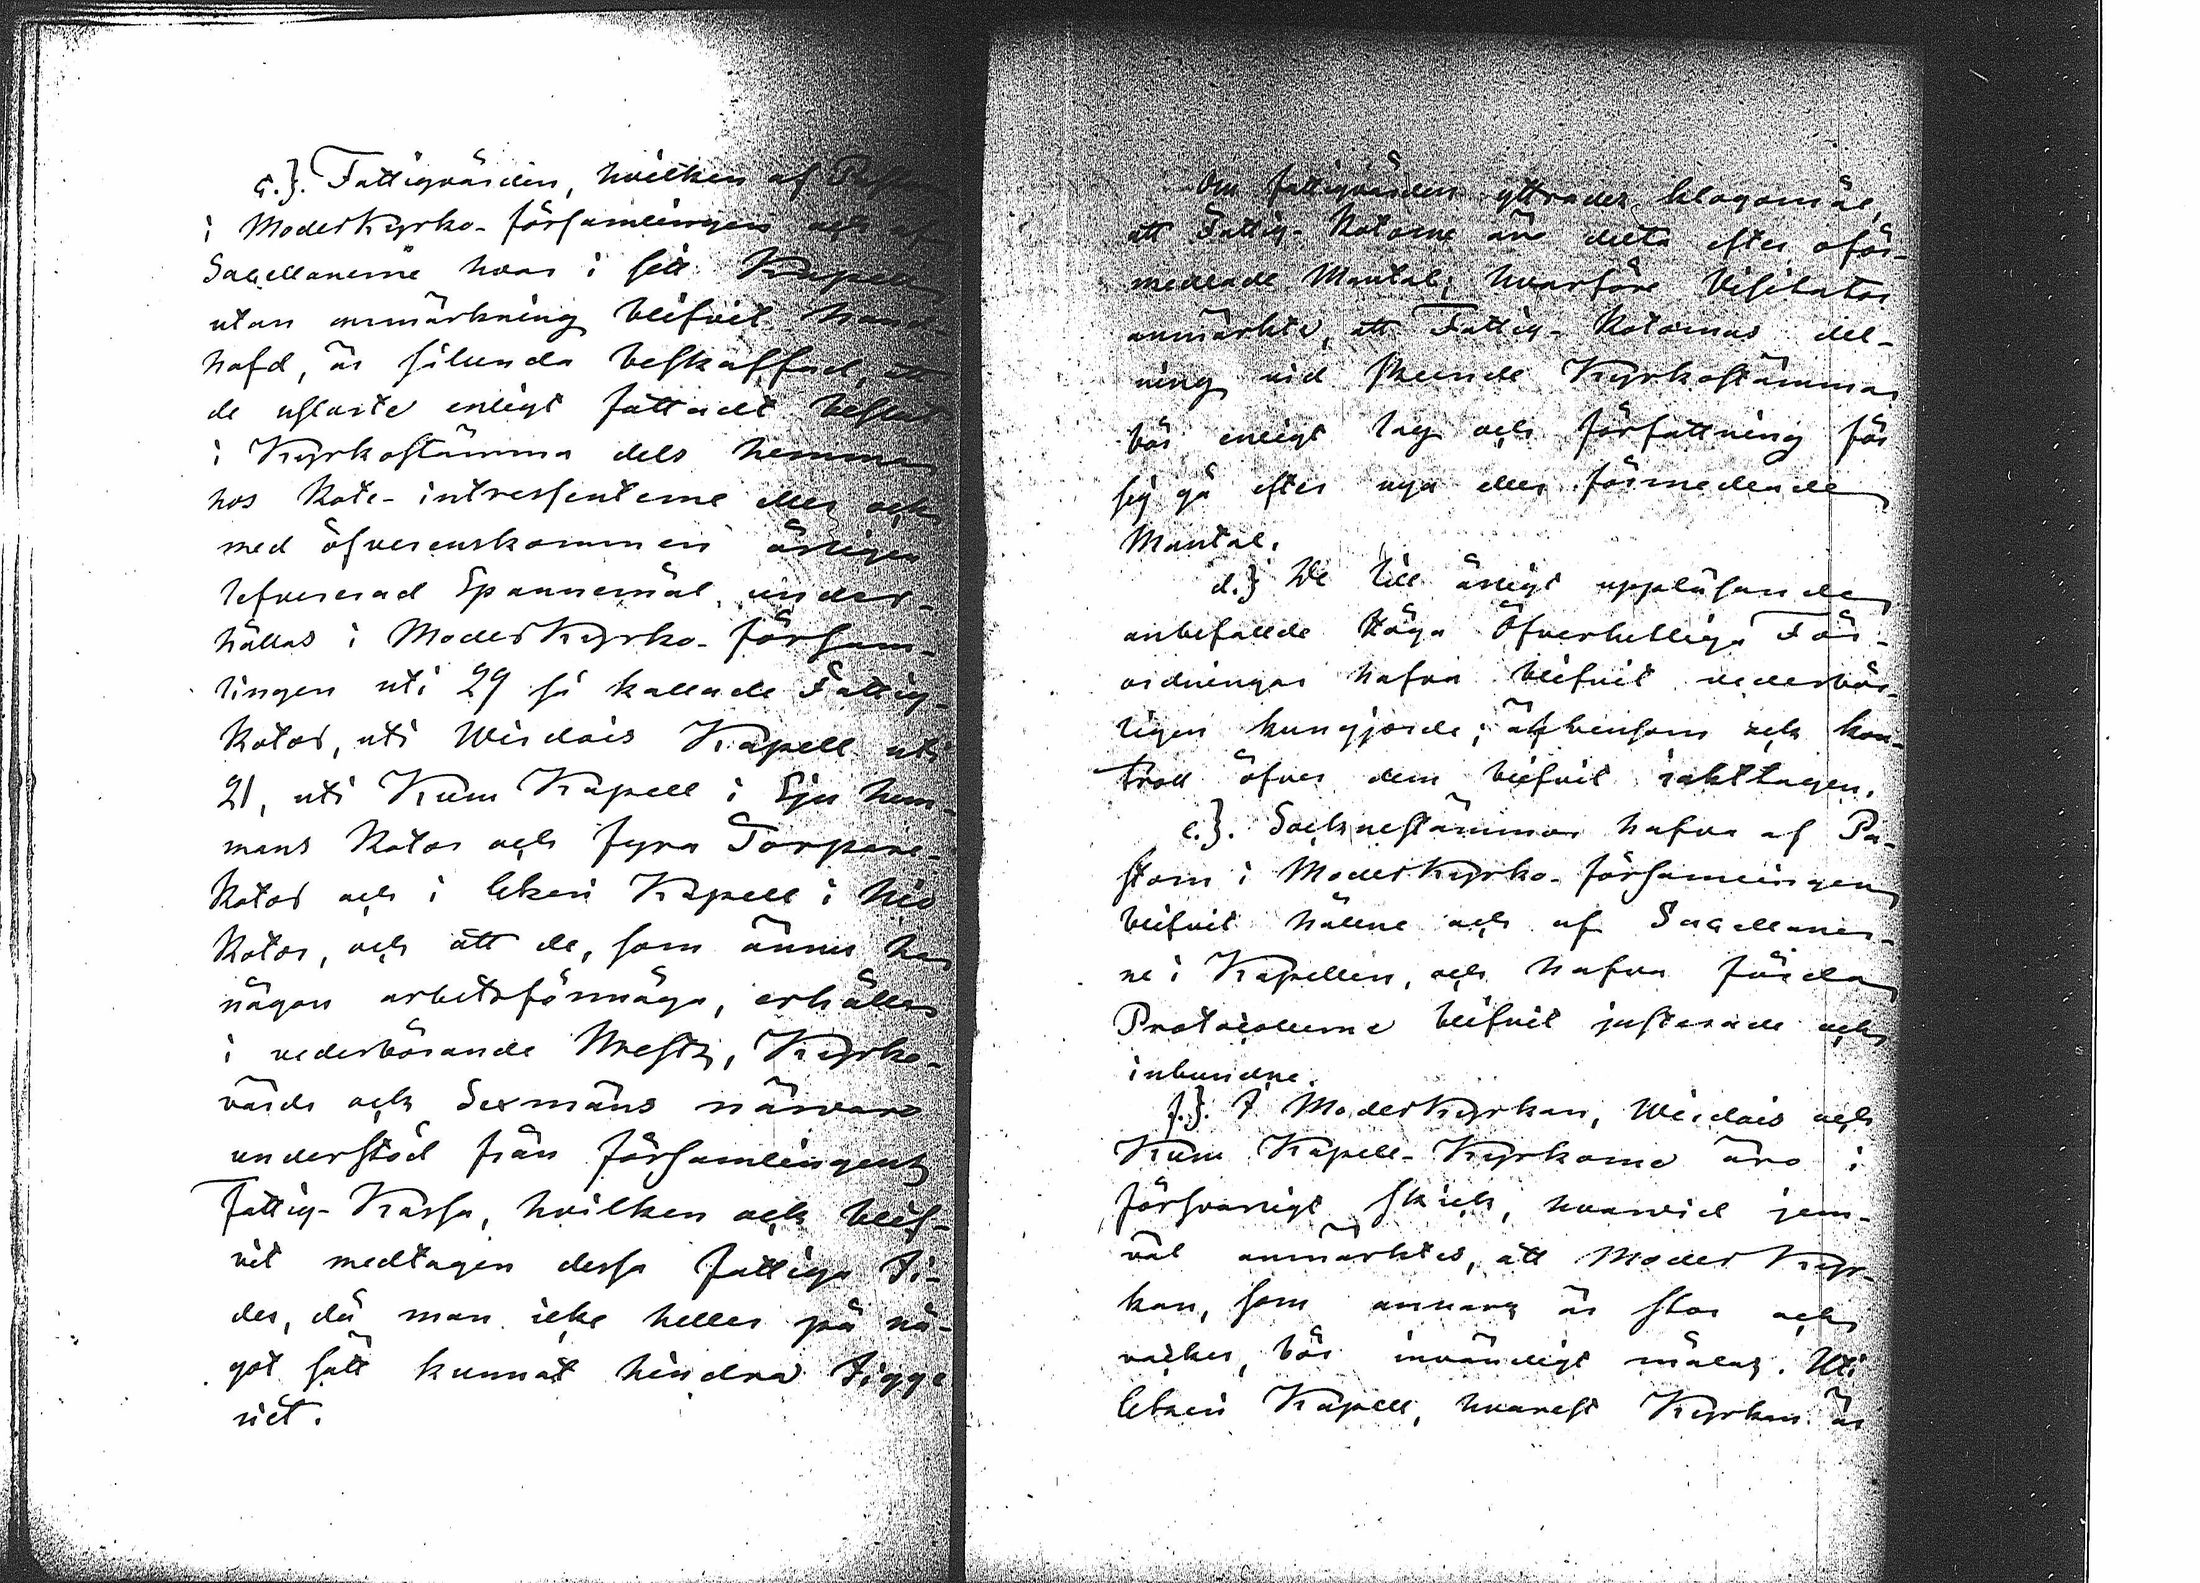 c.}. Fattigvården, hvilken af Pastor
i Moderkyrko-församlingen och af
Sacellanerne hvar i sitt Kapell
utan anmärkning blifvit hand-
hafd, är sålunda beskaffad, att
de uslaste enligt fattadt beslut
i Kyrkostämma dels hemma
hos Rote-intressenterne eller och
med öfverenskommen årligen
lefvererad Spannemål, under-
hållas i Moderkyrko-försam-
lingen uti 29 så kallade Fattig-
Rotor, uti Wirdois Kapell uti
21, uti Kuru Kapell i Sju hem-
mans Rotor och fyra Torpare-
Rotor och i Keuru Kapell i Nio
Rotor, och att de, som ännu ha
någon arbetsförmåga, erhålla
i vederbörande Prests, Kyrko-
värds och Sexmäns närvaro
understöd från församlingens
Fattig-Kassa, hvilken och blif-
vit medtagen dessa fattiga ti-
der, då man icke heller på nå-
got sätt kunnat hindra tigge-
riet.
Om fattigvården yttrades klagomål,
att Fattig-Rotorne äro delta efter oför-
medlade Mantal; hvarföre Visitator
anmärkte, att Fattig-Rotornas del-
ning vid skeende Kyrkostämma
bör enligt lag och författning för
sig gå efter nya eller förmedlade
Mantal.
d.} De till årligt uppläsande
anbefallde Höga Öfverhetliga För-
ordningar hafva blifvit vederbör-
ligen kungjorde; äfvensom och kon-
troll öfver dem blifvit iakttagen.
e.}. Socknestämmor hafva af Pa-
storn i Moderkyrko-församlingen
blifvit hållne och af Sacellaner-
ne i Kapellen, och hafva förda
Protocollerne blifvit justerade och
inbundne.
f.}. I Moderkyrkan, Wirdois och
Kuru Kapell-Kyrkorne äro i
försvarligt skick, hvarvid jem-
väl anmärktes, att Moder Kyr-
kan, som annars är stor och
vacker, bör invändigt målas. Uti
Kapell, hvarest Kyrkan är